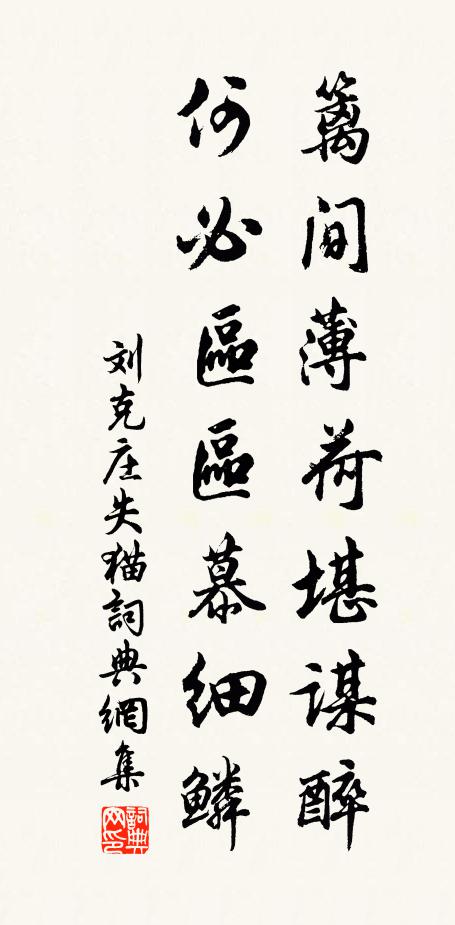 籬間薄荷堪謀醉
何必區區慕細鱗
刘克庄失猫詞典網集
詞典网印